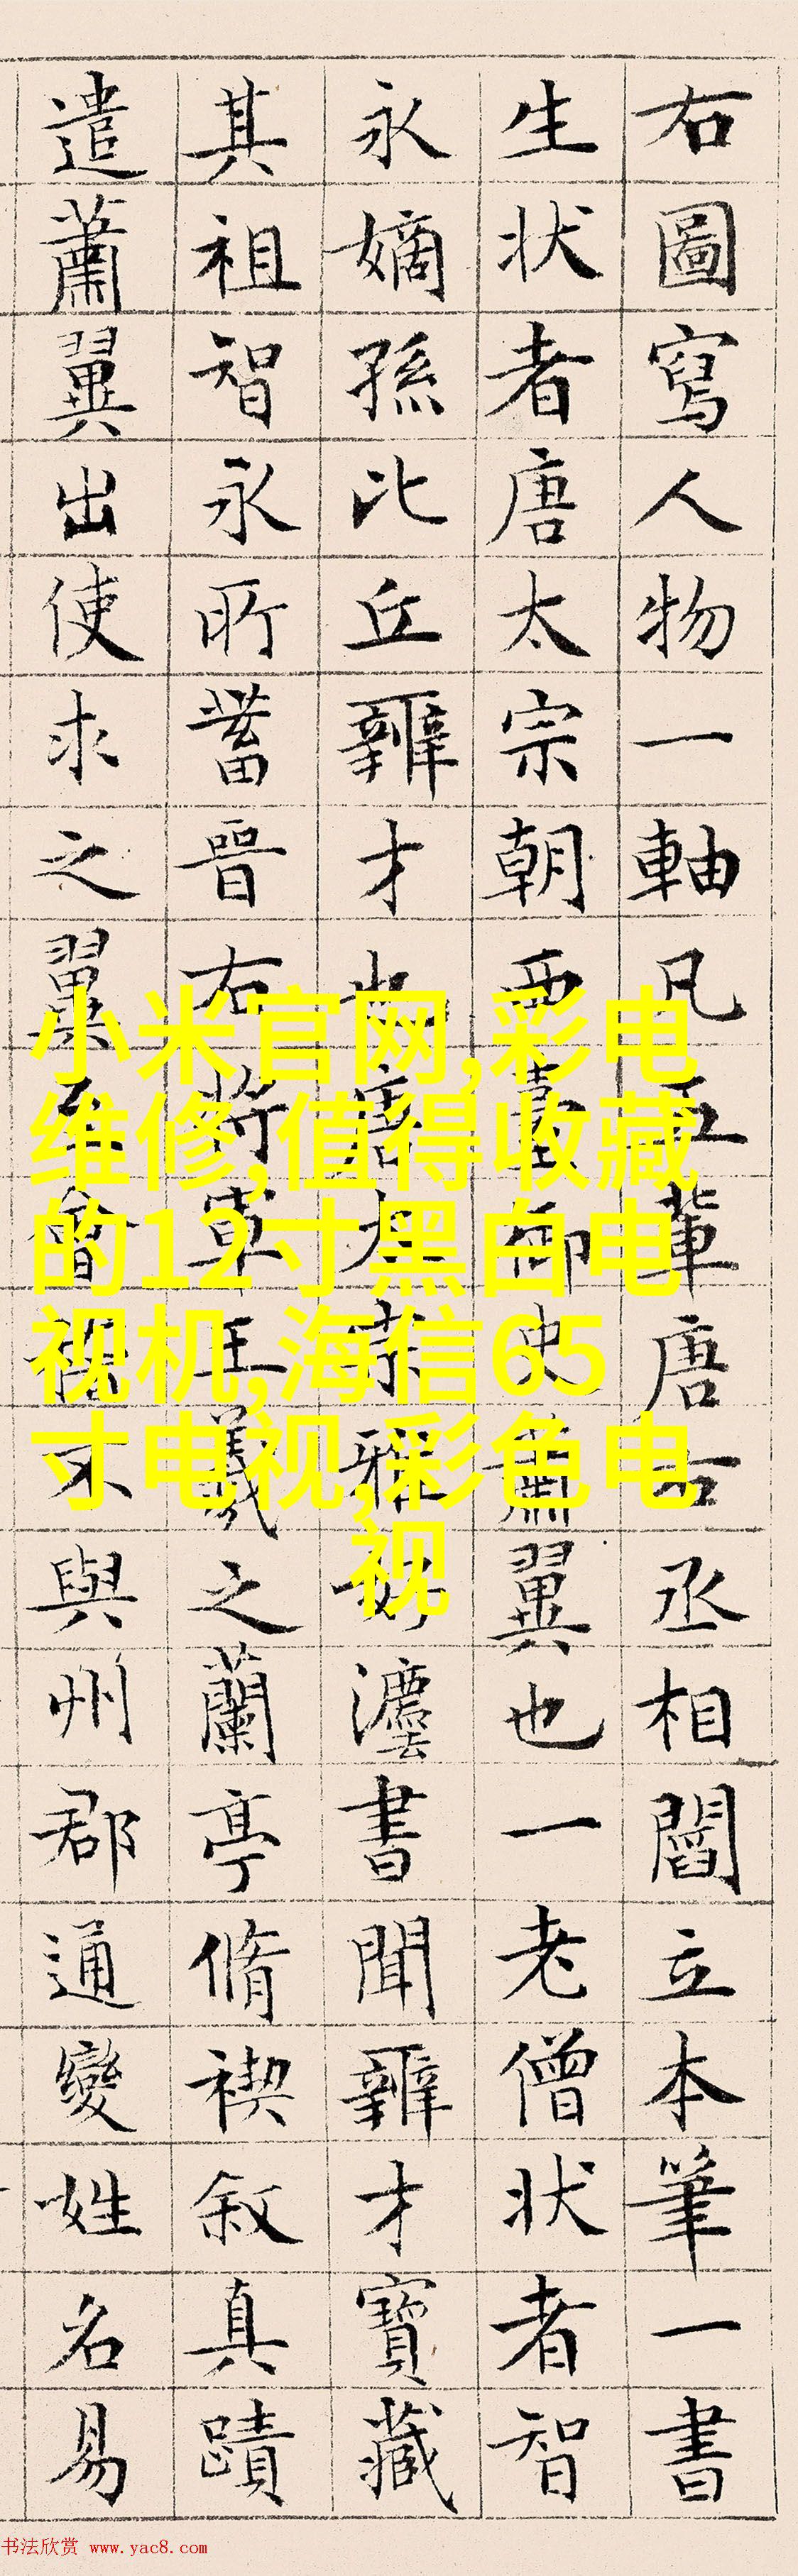 右圖寫人物一軸凡五輩唐右丞相閻立本筆一書
生狀者唐太宗朝西臺御史蕭翼也一老僧狀者智
永嫡孫比丘辯才也唐太宗雅好灋書聞辯才寶藏
其祖智永所蓄晉右將軍王羲之蘭亭脩禊敘真蹟
遣蕭翼出使求之翼至會稽不與州郡通變姓名易
小米官网,彩电
维修,值得收藏
的12寸黑白电
视机,海信65
寸电视,彩色电
视
书法欣赏 www.yac8.com